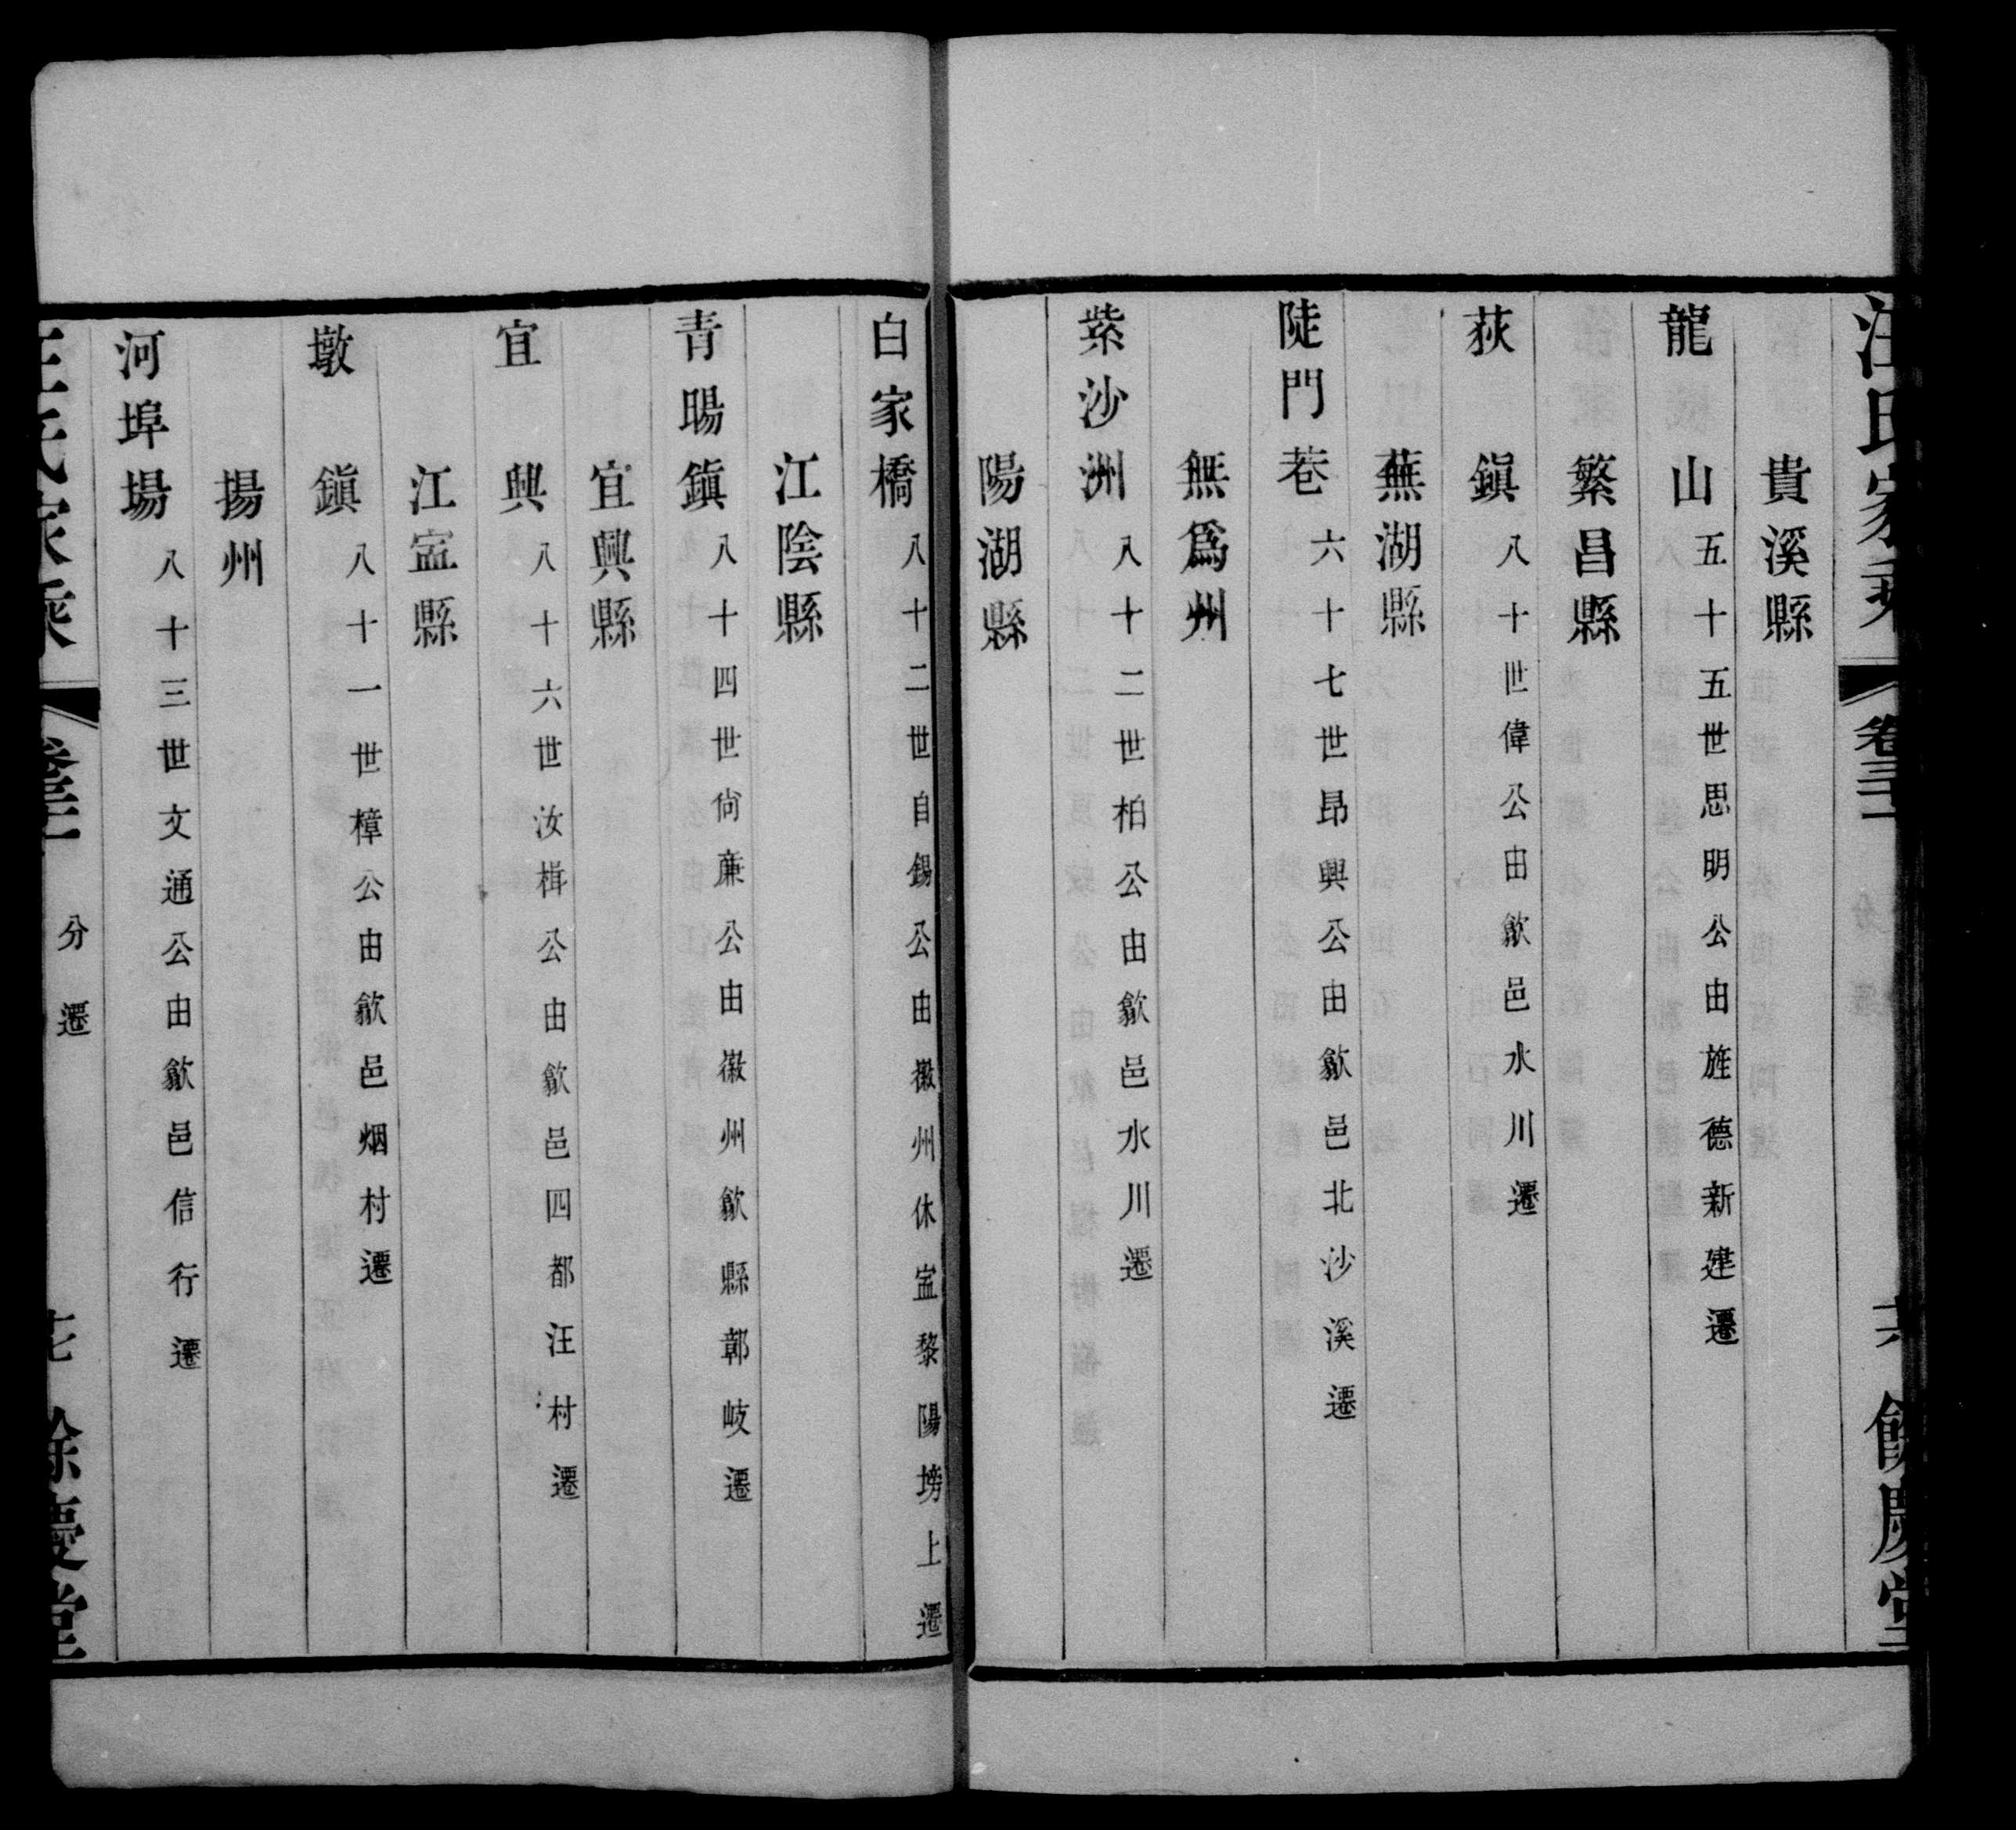 汪氏家乘 卷三 六 餘慶堂
貴溪縣
龍山 五十五世思明公由旌德新建遷
繁昌縣
荻鎭 八十世偉公由歙邑水川遷
蕪湖縣
陡門巷 六十七世昂興公由歙邑北沙溪遷
無爲州
紫沙洲 八十二世柏公由歙邑水川遷
陽湖縣
白家橋 八十二世自錫公由徽州休寍黎陽塝上遷
江陰縣
青暘鎭 八十四世尙亷公由徽州歙縣鄣岐遷
宜興縣
宜興 八十六世汝楫公由歙邑四都汪村遷
江寍縣
墩鎭 八十一世樟公由歙邑烟村遷
揚州
河埠場 八十三世文通公由歙邑信行遷
汪氏家乘 分遷 七 餘慶堂